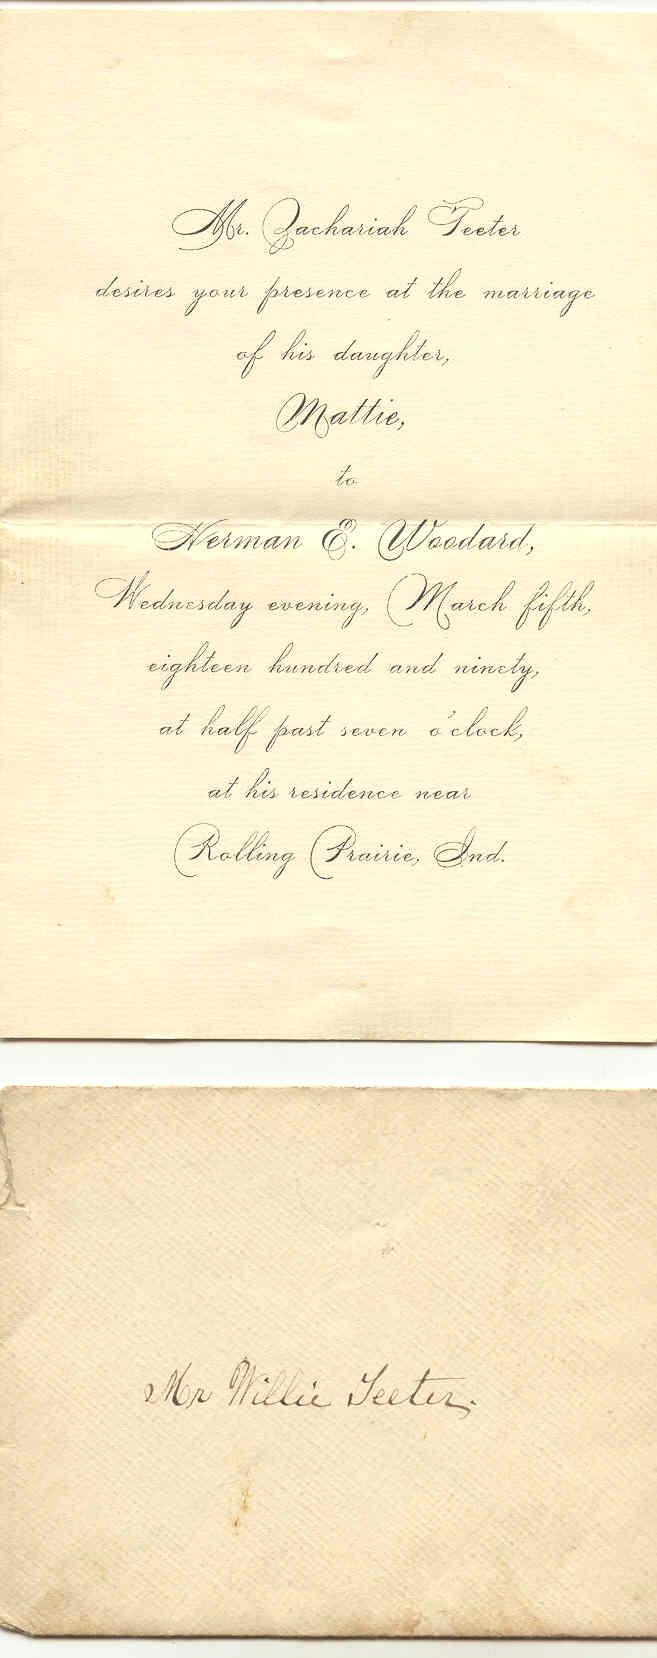 Mr. Zachariah Teeter
desires your presence at the marriage
of his daughter,
Mattie,
to
Herman E. Woodard,
Wednesday evening, March fifth,
eighteen hundred and ninety,
at half past seven o'clock,
at his residence near
Rolling Prairie, Ind.
Mr Willie Teeter.